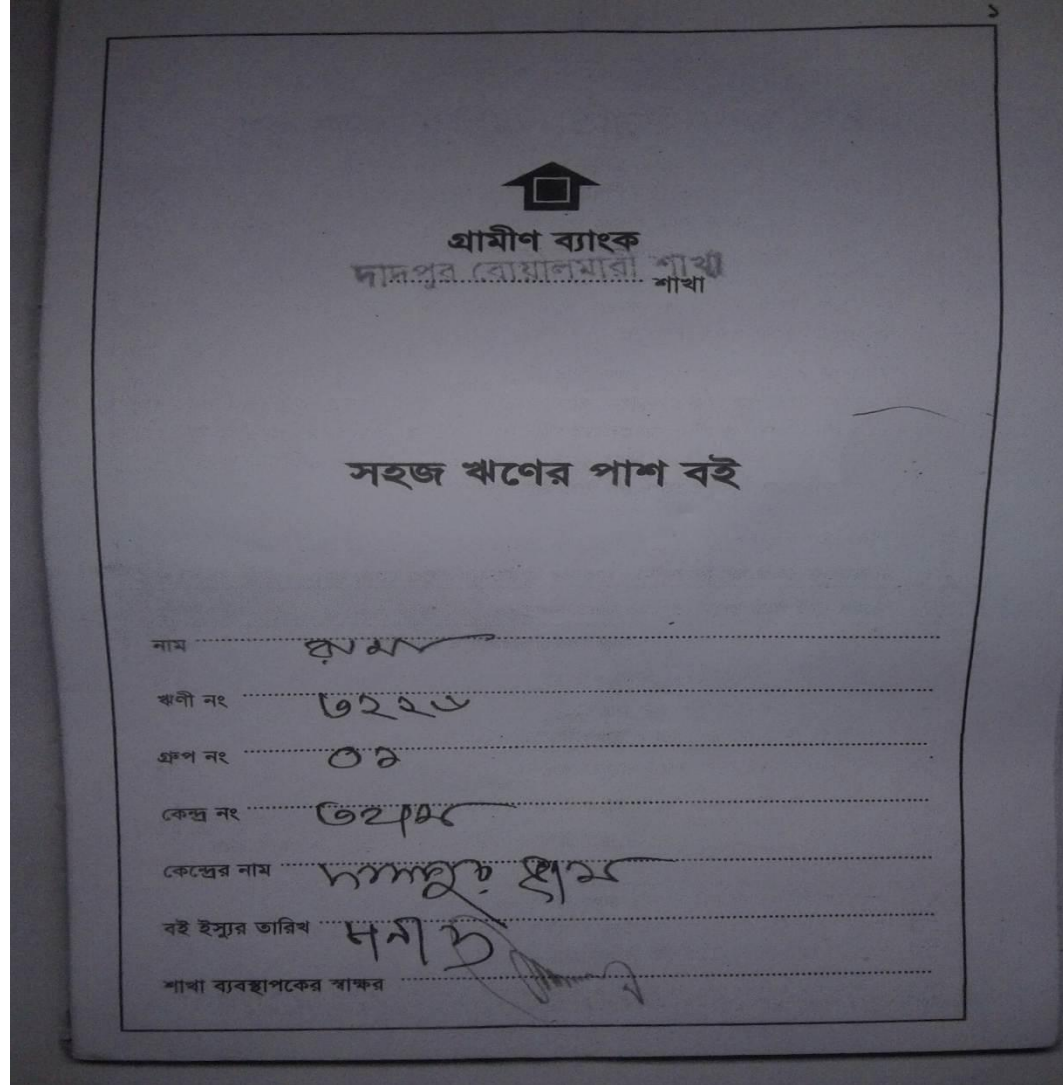 ১
গ্রামীণ ব্যাংক
দাদপুর বোয়ালমারী শাখা
শাখা
সহজ ঋণের পাশ বই
নাম
ঋণী নং ৩২২৬
গ্রুপ নং ০১
কেন্দ্র নং
কেন্দ্রের নাম দাদপুর
বই ইস্যুর তারিখ
শাখা ব্যবস্থাপকের স্বাক্ষর